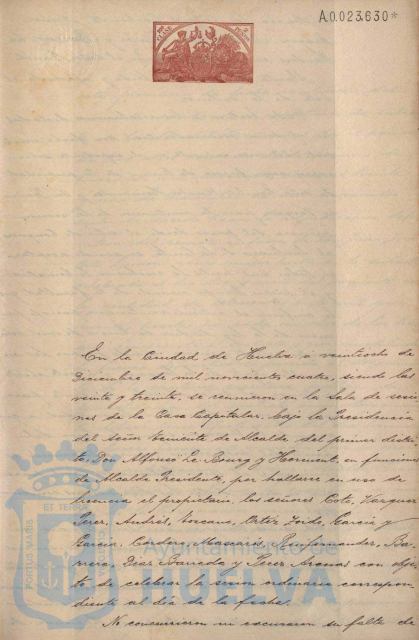 A.0.023.630*
En la Ciudad de Huelva á veintiocho de
Diciembre de mil novecientos cuatro, siendo las
veinte y treinta, se reunieron en la Sala de sesio
nes de la Casa Capitular, bajo la Presidencia
del señor Teniente de Alcalde del primer distri-
to, Don Alfonso Le Bourg y en funciones
de Alcalde Presidente, por hallarse en uso de
licencia el propietario, los señores Coto, Vazquez
Perez, Andrés, Toscano, Ortiz, García y
García, Cordero, Mascarós, Ba
rrera, Diaz Barreda y Perez con obje
to de celebrar la sesion ordinaria correspon
diente al dia de la fecha.
No concurrieron ni excusaron su falta de
PORTUS MARIS
ET TERRÆ
Ayuntamiento de
HUELVA